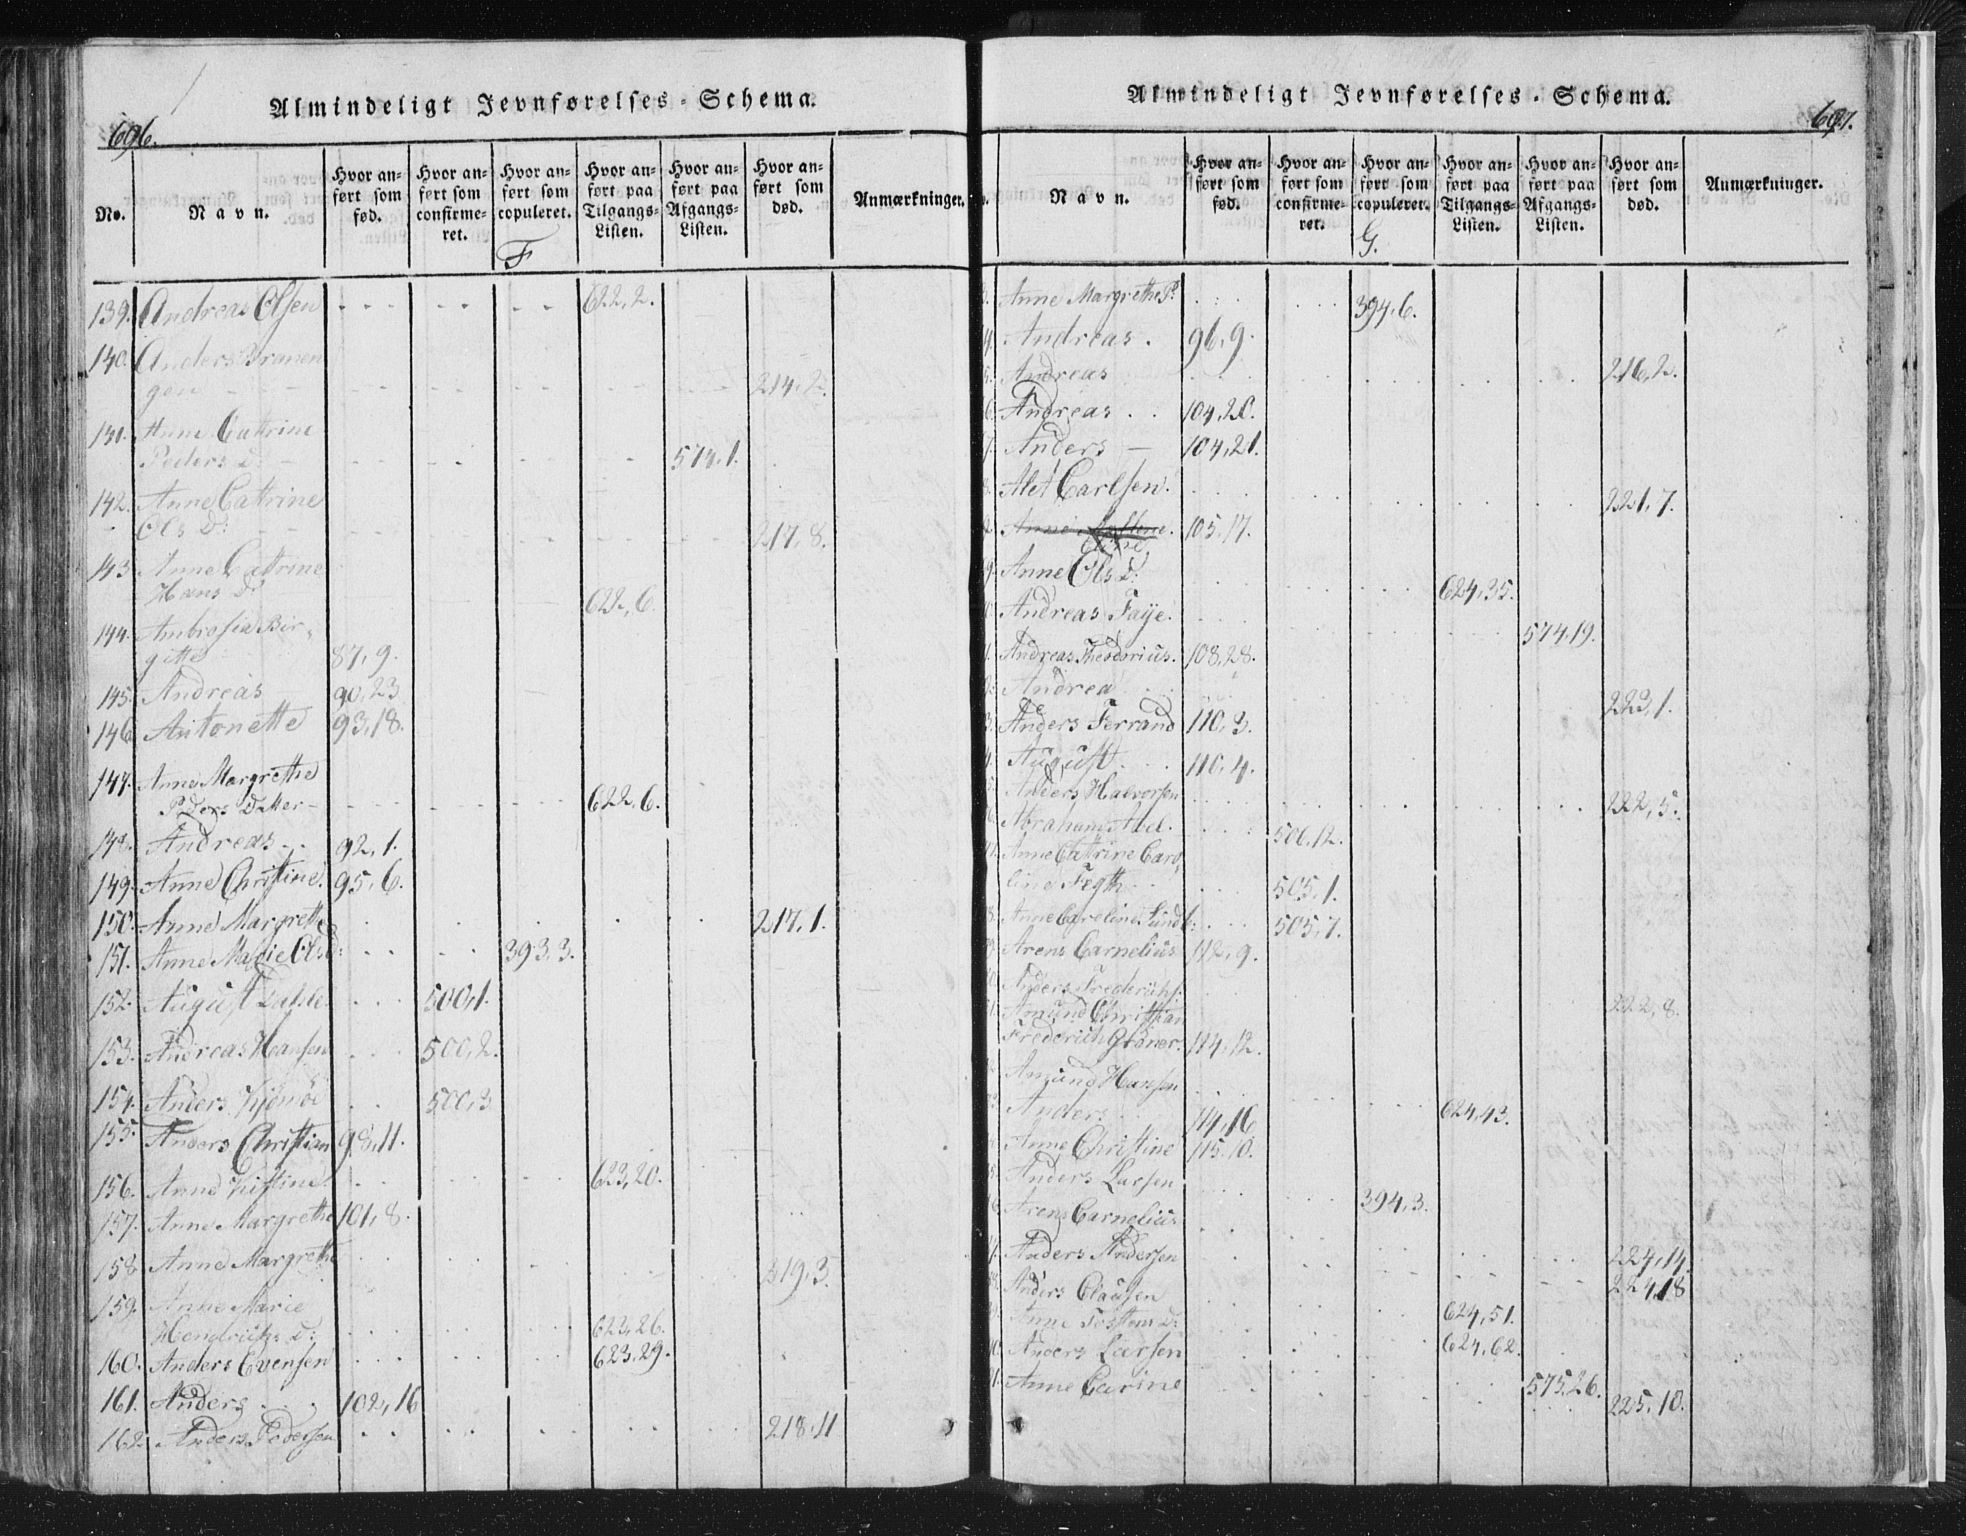 Almindeligt Jevnførelses-Schema.
696.
No.
Navn.
Hvor anført som fød.
Hvor anført som confirmeret.
Hvor anført som copuleret.
Hvor anført paa Tilgangs-Listen.
Hvor anført paa Afgangs-Listen.
Hvor anført som død.
Anmærkninger.
F
139. Andreas Olsen 622,2.
140. Anders
gen 214,2.
141. Anne Cathrine
Peders D: 574,1.
142. Anne Catrine
Ols D: 217,8.
143. Anne Catrine
Hans D: 622,6.
144. Ambrosia Bir-
gitte 87,9.
145. Andreas 90,23
146. Antonette 93,18.
147. Anne Margrethe
Peders Datter 622,6.
148. Andreas 92,1.
149. Anne Christine. 95,6.
150. Anne Margrethe 217,1.
151. Anne Marie Olsd: 393,3.
152. August Dahle 500,1.
153. Andreas Hansen 500,2.
154. Anders 500,3
155. Anders Christian 98,11.
156. Anne Kistine 623,20.
157. Anne Margrethe 101,8.
158. Anne Margrethe 219,3.
159. Anne Marie
Hendrichs D: 623,26.
160. Anders Evensen 623,29.
161. Anders 102,16
162. Anders Pedersen 218,11
Almindeligt Jevnførelses-Schema.
697.
Navn.
Hvor anført som fød.
Hvor anført som confirmeret.
Hvor anført som copuleret.
Hvor anført paa Tilgangs-Listen.
Hvor anført paa Afgangs-Listen.
Hvor anført som død.
Anmærkninger.
G.
3. Anne Margrethe P: 394,6.
4. Andreas. 96,9.
5. Andreas 216,2.
6. Andreas 104,20.
7. Anders 104,21.
8. Alet Carlsen. 221,7.
Anne 105,17.
9. Anne Ols D: 624,35.
0. Andreas Faye. 574,19.
1. Andreas Theodorius. 108,28.
2. Andrea 223,1.
3. Anders Ferrand 110,3.
4. August 110,4.
5. Anders Halvorsen 222,5.
6. Abraham Abel. 506,12.
7. Anne Catrine Caro-
line Fegth 505,1.
8. Anne Caroline Lund 505,7.
9. Arens Carnelius 112,9.
0. Anders Frederichs. 222,8.
1. Amund Christian
Frederich Grøner. 114,12.
Amund Hansen 624,43.
3. Anders 114,16
4. Anne Christine 115,10.
5. Anders Larsen 394,3.
6. Arens Carnelius
7. Anders Andersen 224,14.
8. Anders Clausen 224,18
9. Anne Tostens D: 624,51.
0. Anders Larsen 624,62.
1. Anne Carine 575,26. 225,10.